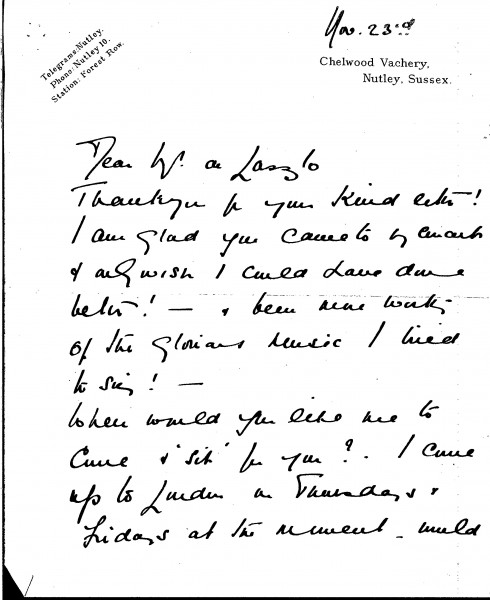 Nov. 23rd
Telegrams: Nutley.
Phone: Nutley 10.
Station: Forest Row.
Chelwood Vachery,
Nutley, Sussex.
Dear Mr de Laszlo
Thankyou for your kind letter!
I am glad you came to my concert
& only wish I could have done
better! — & been more worthy
of the glorious music I tried
to sing! —
When would you like me to
come & 'sit' for you? . I come
up to London on Thursdays &
Fridays at the moment - would